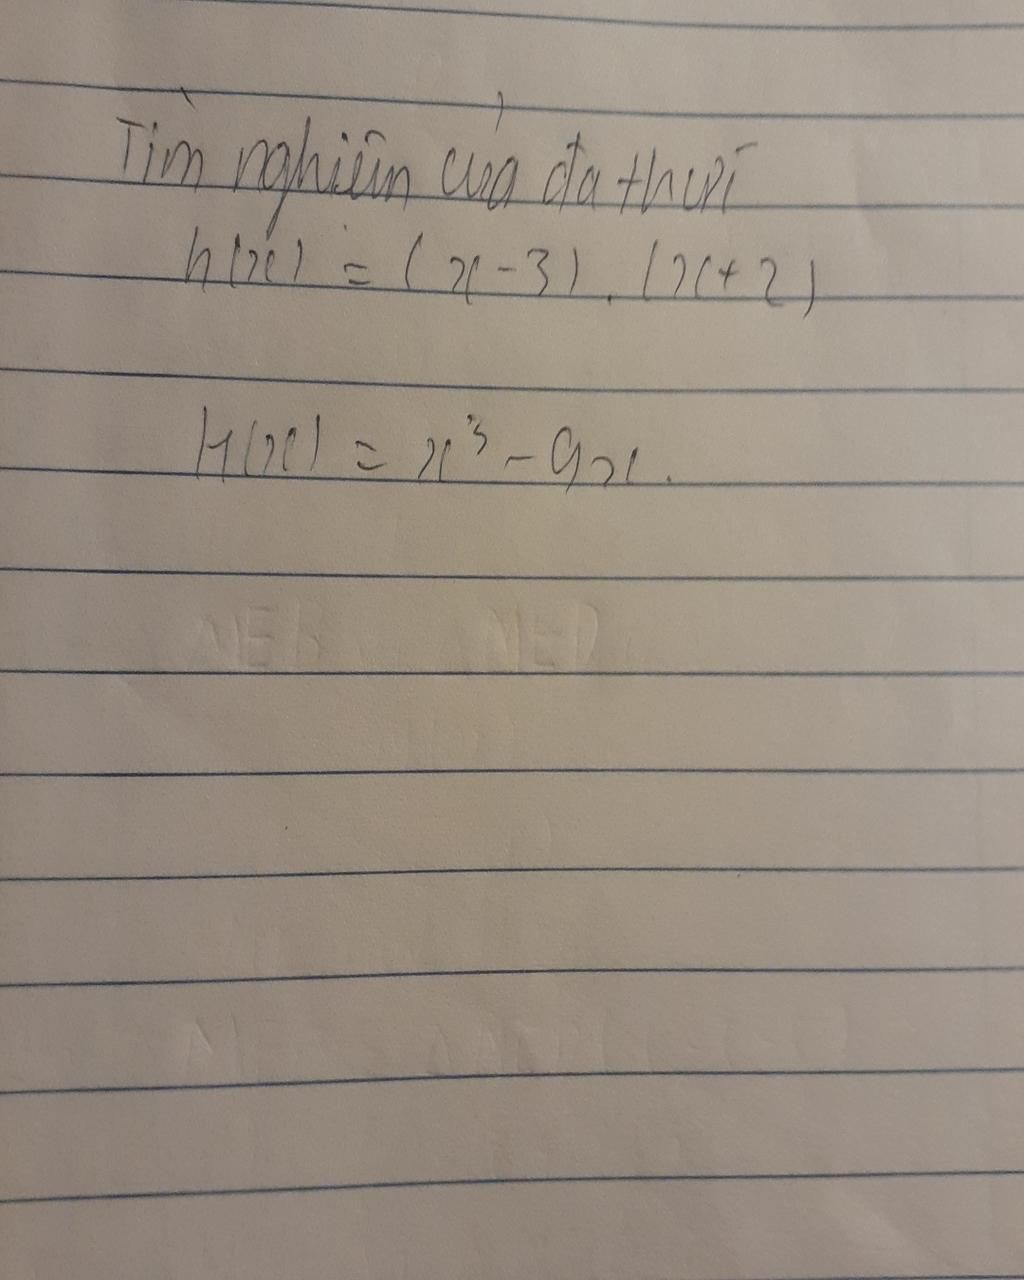 Tìm nghiệm của đa thức
h(x) = (x - 3) . (x + 2)
H(x) = x³ - 9x.